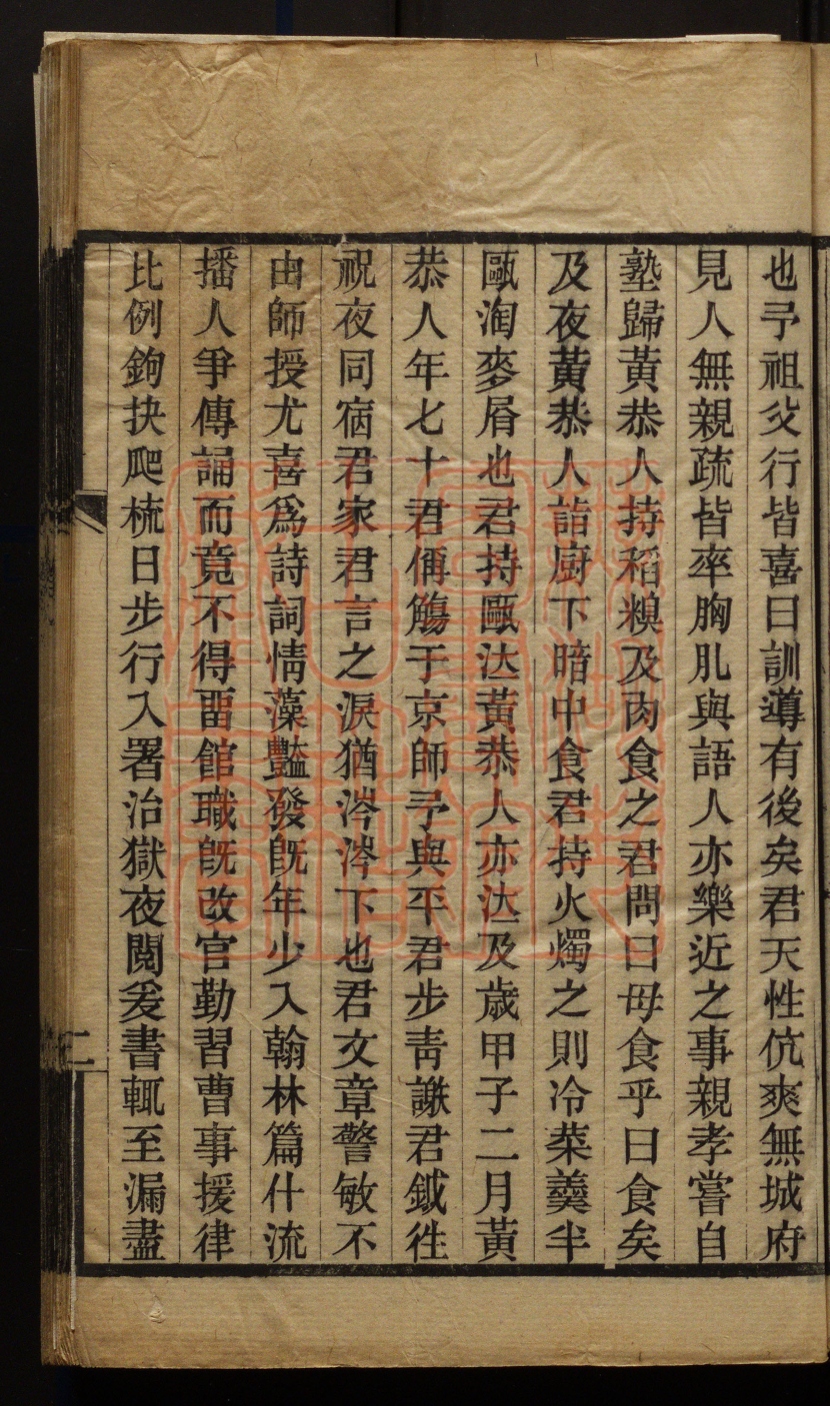 也予祖父行皆喜曰訓導有後矣君天性伉爽無城府
見人無親疏皆率胸肊與語人亦樂近之事親孝嘗自
塾歸黃恭人持稻糗及肉食之君問曰母食乎曰食矣
及夜黃恭人詣廚下暗中食君持火燭之則冷菜羹半
甌淘麥屑也君持甌泣黃恭人亦泣及歲甲子二月黃
恭人年七十君偁觴于京師予與平君步青謝君鉞徃
祝夜同宿君家君言之淚猶涔涔下也君文章警敏不
由師授尤喜爲詩詞情藻豔發旣年少入翰林篇什流
播人爭傳誦而竟不得畱館職旣改官勤習曹事援律
比例鉤抉爬梳日步行入署治獄夜閱爰書輒至漏盡
二